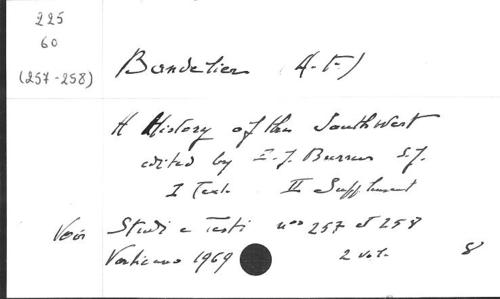 225
60
(257-258)
Bandelier (A.F.)
A History of the Southwest
edited by E.J. Burrus S.J.
I Text. II Supplement
Voir Studi e Testi nos 257 et 258
Vaticano 1969 2 vol. 8